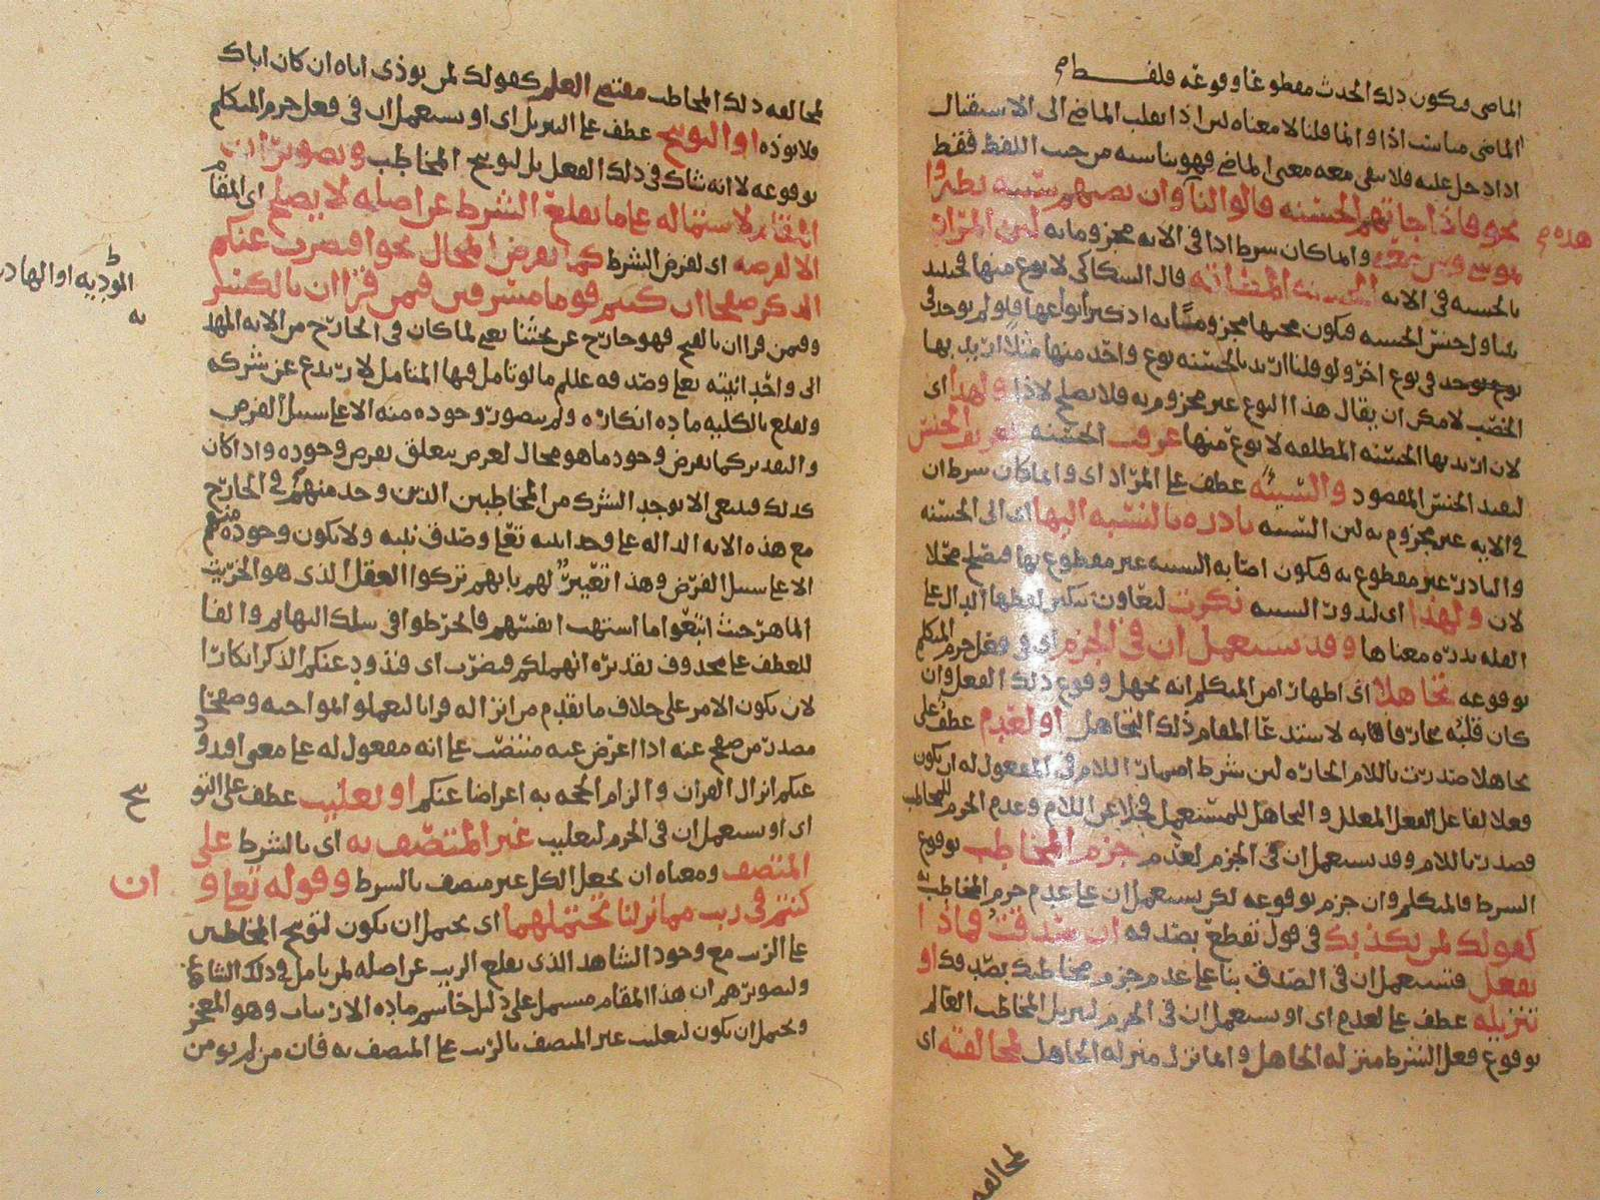 الماضي فيكون ذلك الحدث مقطوعا بوقوعه فلفظ
الماضي مناسب اذا وانما قلنا لا معناه لان اذا تقلب الماضي الى الاستقبال
اذا دخل عليه فلا يبقى معه معنى الماضي فهو يناسبه من حيث اللفظ فقط
نحو فاذا جاتهم الحسنه قالوا لنا وان تصبهم سيئه يطيروا
هذه م
بموسى ومن معه واما كان شرط اذا في الايه مجزوما به لان المراد
بالحسنه في الايه الحسنه المطلقه قال السكاكي لا نوع منها فحينئذ
يتناول جنس الحسنه فيكون مجيها مجزوما به اذ كثر أنواعها فلو لم يوجد في
نوع يوجد في نوع اخر ولو قلنا اريد بالحسنه نوع واحد منها مثلا اريد بها
الخصب لامكن ان يقال هذا النوع غير مجزوم به فلا يصلح لاذا ولهذا اى
لان اريد بها الحسنه المطلقه لا نوع منها عرفت الحسنه تعريف الجنس
ليفيد الجنس المقصود والسيئه عطف على المراد اى وانما كان شرط ان
في الايه غير مجزوم به لان السيئه نادره بالنسبه اليها اى الى الحسنه
والنادر غير مقطوع به فيكون اصابه السيئه غير مقطوع بها فيصلح محلا
لان ولهذا اى لندور السيئه نكرت ليعاون تنكير لفظها الدال على
القله ندره معناها وقد يستعمل ان في الجزم اى في فعل جزم المتكلم
بوقوعه تجاهلا اى اظهار امر المتكلم انه يجهل وقوع ذلك الفعل وان
كان قلبه بخلافه لاستدعا المقام ذلك التجاهل او لعدم عطف على
تجاهلا صدرت باللام الجاره لان شرط اضمار اللام في المفعول له ان يكون
فعلا لفاعل الفعل المعلل والتجاهل للمستعمل فخلا عن اللام وعدم الجزم للمخاطب
فصدرت باللام وقد يستعمل ان في الجزم لعدم جزم المخاطب بوقوع
الشرط فالمتكلم وان جزم بوقوعه لكن يستعمل ان على عدم جزم المخاطب
كقولك لمن يكذبك في قول تقطع بصدقه ان صدقت فماذا
تفعل فتستعمل ان في الصدق بنا على عدم جزم مخاطبك بصدقك او
تنزيله عطف على لعدم اى او يستعمل ان في الجزم لتنزيل المخاطب العالم
بوقوع فعل الشرط منزله الجاهل وانما نزل منزله الجاهل لمخالفته اى
لمخالفه
لمخالفه ذلك المخاطب مقتضى العلم كقولك لمن يوذى اباه ان كان اباك
فلا توذه او التوبيخ عطف على التنزيل اى او يستعمل ان في فعل جزم المتكلم
بوقوعه لا انه شاك في ذلك الفعل بل لتوبيخ المخاطب وتصوير ان
المقام لاشتماله على ما يقلع الشرط عن اصله لا يصلح اى المقام
الا لفرضه اى لفرض الشرط كما يفرض المحال نحو افنضرب عنكم
الذكر صفحا ان كنتم قوما مسرفين فيمن قرا ان بالكسر
وفيمن قرا ان بالفتح فهو خارج عن بحثنا يعني لما كان في الخارج من الايه الهاد
الموديه او الهاد
يه
الى واحدانيته تعا وصدقه عللم ما لو تامل فيها المتامل لارتدع عن شركه
ولقلع بالكليه ماده انكاره ولم يتصور وجوده منه الا على سبيل الفرض
والتقدير كما يفرض وجود ما هو محال لغرض يتعلق بفرض وجوده واذا كان
كذلك فينبغى الا يوجد الشرك من المخاطبين الذين وجد منهم في الخارج
مع هذه الايه الداله على وحدانيته تعا وصدق نبيه ولا يكون وجوده منهم
الا على سبيل الفرض وهذا تعيير لهم بانهم تركوا العقل الذى هو الخريت
الماهر حيث اتبعوا ما اشتهت انفسهم فانخرطوا في سلك البهائم والفا
للعطف على محذوف تقديره انهملكم فنضرب اى فنذود عنكم الذكر انكارا
لان يكون الامر على خلاف ما تقدم من انزاله قرانا ليعملوا بمواجبه وصفحا
مصدر من صفح عنه اذا اعرض عنه منتصب على انه مفعول له على معنى افندود
عنكم انزال القران والزام الحجه به اعراضا عنكم او تغليب عطف على التو
بيخ
اى او يستعمل ان في الجزم لتغليب غير المتصف به اى بالشرط على
المتصف ومعناه ان يجعل الكل غير متصف بالشرط وقوله تعا و ان
كنتم في ريب مما نزلنا يحتملهما اى يحتمل ان يكون لتوبيخ المخاطبين
على الريب مع وجود الشاهد الذى يقلع الريب عن اصله لمن تامل في ذلك الشاهد
ولتصويرهم ان هذا المقام مشتمل على دليل حاسم ماده الارتياب وهو المعجز
ويحتمل ان يكون لتغليب غير المتصف بالريب على المتصف به فان من لم يومن